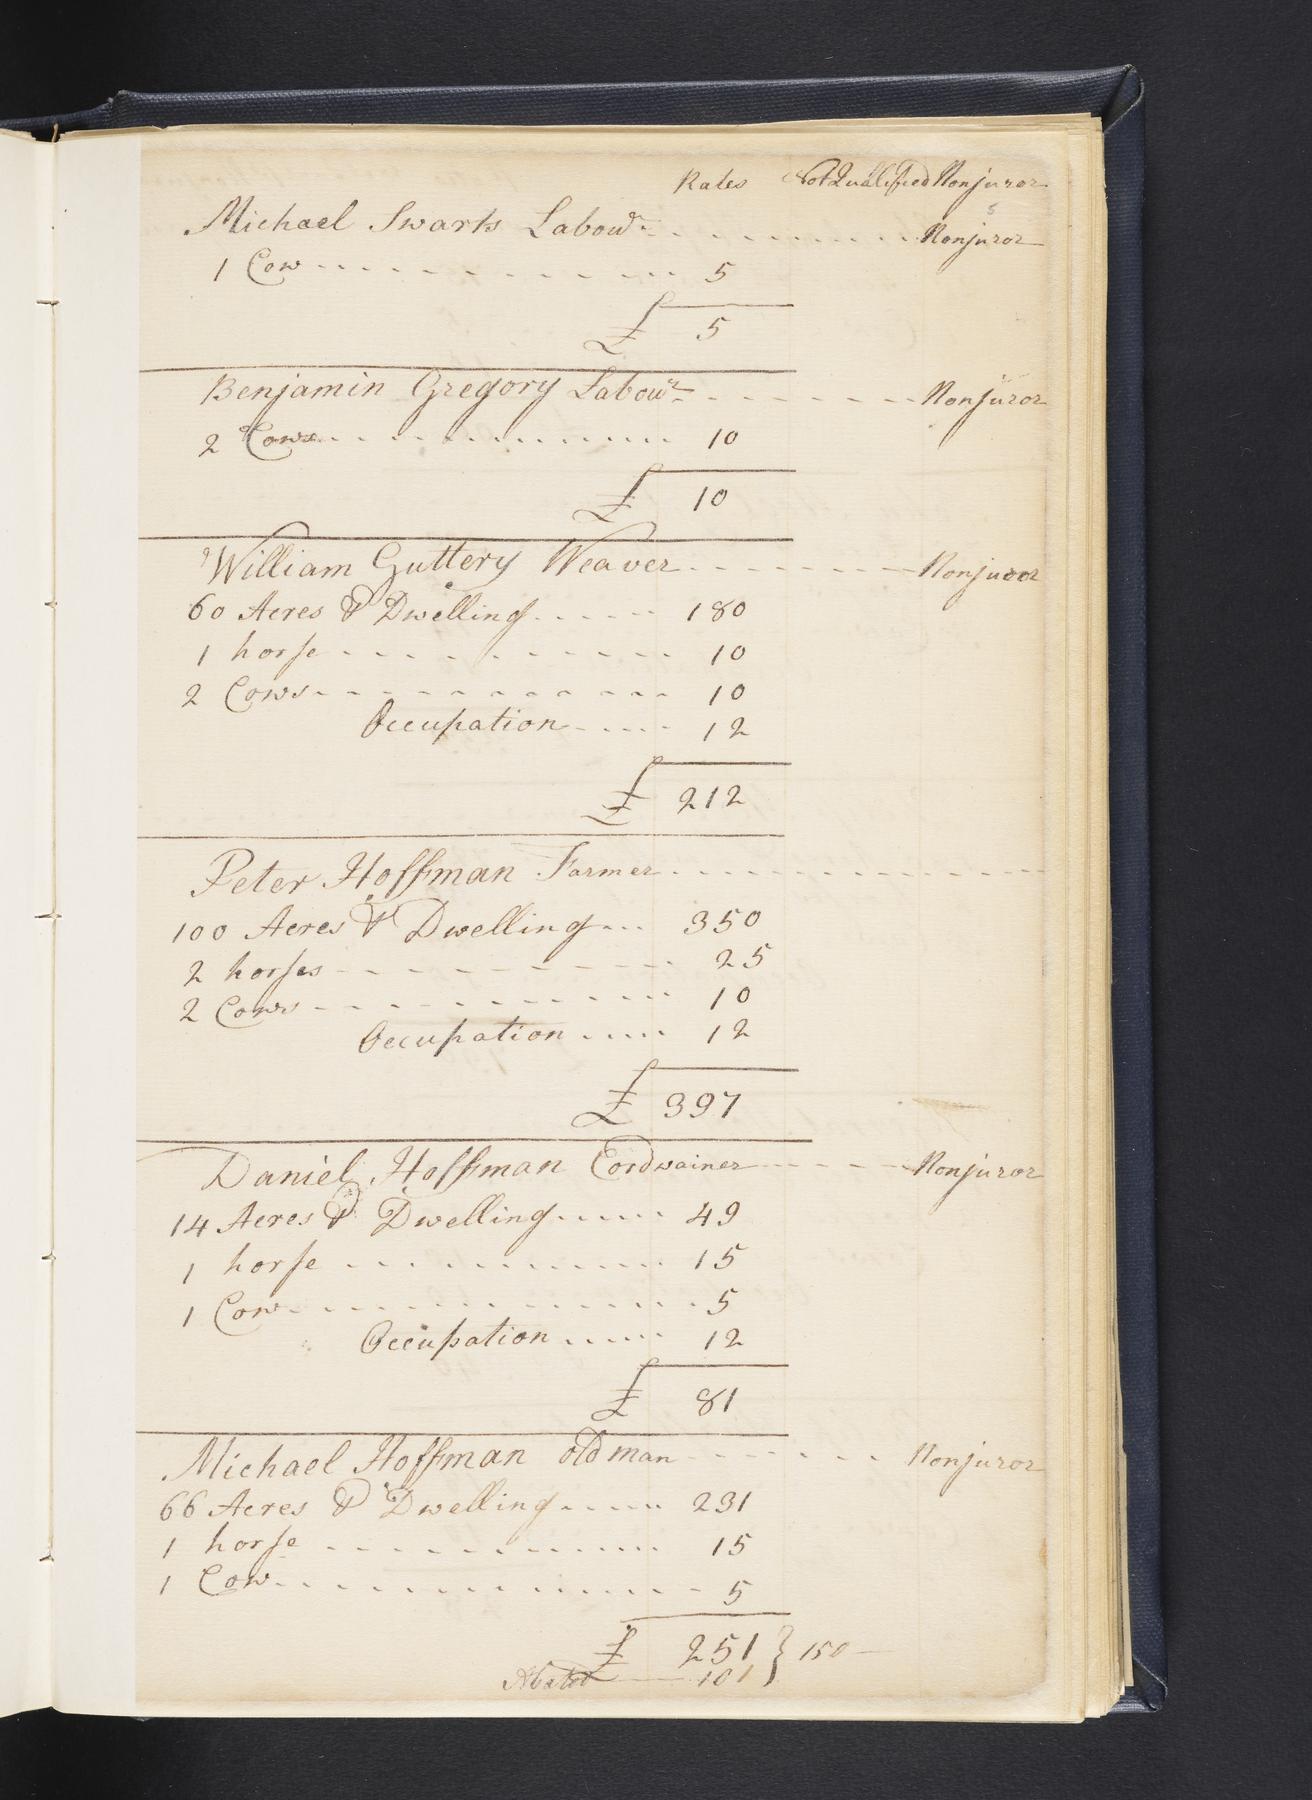 Rates Not Qualified Nonjuror
5
Michael Swarts Labour. . . . . . . . . . Nonjuror
1 Cow - - - - - - - - - - 5
£ 5
Benjamin Gregory Labour - - - - - - - Nonjuror
2 Cows - - - - - - - - - - 10
£ 10
William Guttery Weaver - - - - - - - Nonjuror
60 Acres & Dwelling - - - - - 180
1 horse - - - - - - - - - 10
2 Cows - - - - - - - - - 10
Occupation - - - - 12
£ 212
Peter Hoffman Farmer - - - - - - - - - -
100 Acres & Dwelling - - - 350
2 horses - - - - - - - - 25
2 Cows - - - - - - - - - 10
Occupation - - - - 12
£ 397
Daniel Hoffman Cordwainer - - - - - Nonjuror
14 Acres & Dwelling - - - - 49
1 horse - - - - - - - - - 15
1 Cow - - - - - - - - - 5
Occupation - - - - 12
£ 81
Michael Hoffman old man - - - - - - Nonjuror
66 Acres & Dwelling - - - - 231
1 horse - - - - - - - - - 15
1 Cow - - - - - - - - - 5
£ 251 } 150 -
Abated - - 101